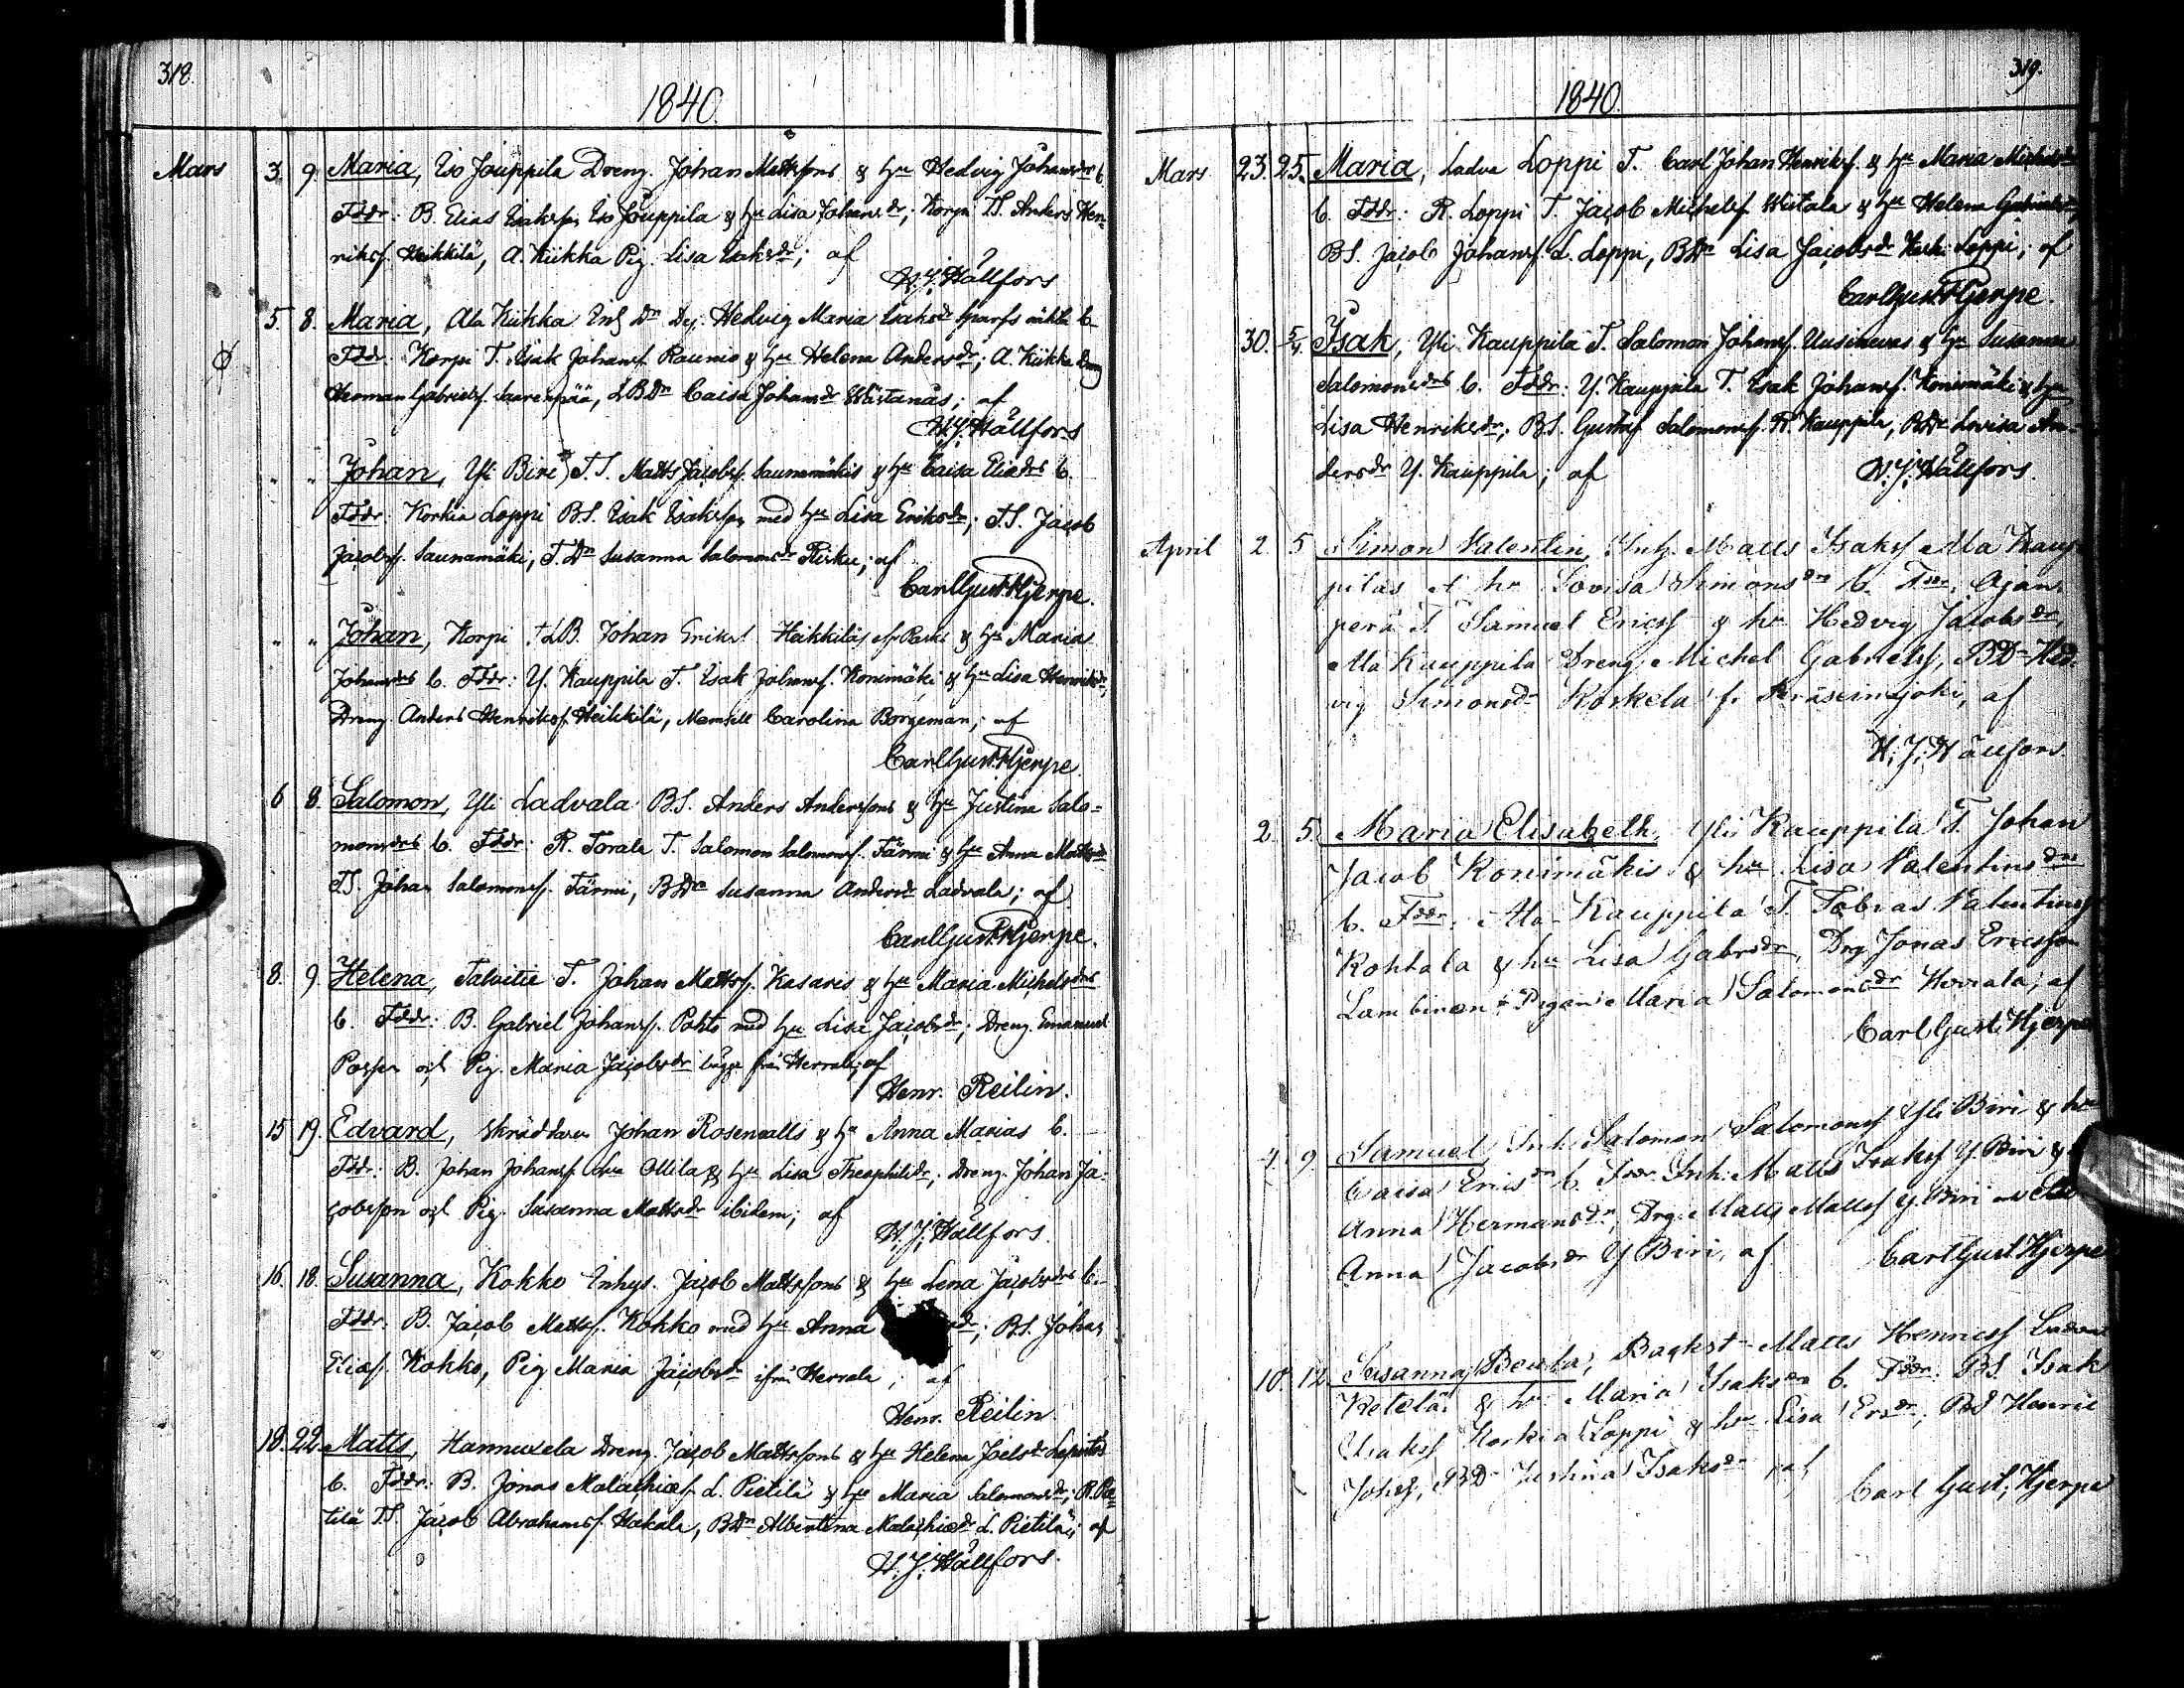 318.
1840.
Mars 3. 9. Maria, Iso Jouppila Dreng. Johan Mattssons & hu Hedvig Johansdrs b.
Fddr: B. Elias Isaksson Iso Jouppila & hu Lisa Johansdr; Korpi TS. Anders Hen-
rikss. Heikkilä, A. Kiikka Pig. Lisa Isaksdr; af
H.J. Hällfors
5. 8. Maria, Ala Kiikka Inh Dr Dej. Hedvig Maria Isaksdr oäkta b.
Fddr: Korpi T. Isak Johanss. Raunio & hu Helena Andersdr; A. Kiikka Dreng
Herman Gabrielss. Saarenpää, LBDr Caisa Johansdr; af
H.J. Hällfors
" " Johan, Yli Biri T.S. Matts Jacobss. Saunamäkis & hu Caisa Eliædrs b.
Fddr: Korkia Loppi B.S. Isak Isaksson med hu Lisa Eriksdr; T.S. Jacob
Jacobss. Saunamäki, T.Dr Susanna Salomonsdr; af
Carl Gust. Hjerpe.
" " Johan, Korpi LB. Johan Erikss. Heikkiläs & hu Maria
Johansdrs b. Fddr: Y. Kauppila T. Isak Johanss. Konimäki & hu Lisa Henriksdr,
Dreng Anders Henrikss. Heikkilä, Mamsell Carolina Borgeman; af
Carl Gust. Hjerpe
6 8. Salomon, Yli Ladvala B.S. Anders Anderssons & hu Justina Salo-
monsdrs b. Fddr: R. Torala T. Salomon Salomonss. Färmi & hu Anna Mattsdr
TS. Johan Salomonss. Färmi, BDr Susanna Andersdr Ladvala; af
Carl Gust. Hjerpe.
8. 9. Helena, Talvitie T. Johan Mattss. Kasaris & hu Maria Michelsdrs
b. Fddr: B. Gabriel Johanss. Pohto med hu Lisa Jacobsdr; Dreng. Emanuel
och Pig. Maria Jacobsdr bägge från Herrala; af
Henr. Reilin.
15 19. Edvard, Skräddaren Johan Rosenvalls & hu Anna Marias b.
Fddr: B. Johan Johanss. Ollila & hu Lisa Theophilidr; Dreng. Johan Ja-
cobsson och Pig. Susanna Mattsdr ibidem; af
H.J. Hällfors.
16. 18. Susanna, Kokko Inhys. Jacob Mattssons & hu Lena Jacobsdrs b.
Fddr: B. Jacob Mattss. Kokko med hu Anna dr; BS. Johan
Eliæss. Kokko, Pig Maria Jacobsdr ifrån Herrala; af
Henr. Reilin.
18. 22. Matts, Hannuxela Dreng. Jacob Mattssons & hu Helena Joelsdr
b. Fddr: B. Jonas Malachiæs. L. Pietilä & hu Maria Salomonsdr; R. Pie-
tilä T.S. Jacob Abrahamss. Hakala, BDr Albertina Malachiædr L. Pietilä; af
H.J. Hällfors.
319.
1840.
Mars 23. 25. Maria, Ladva Loppi T. Carl Johan Henrikss. & hu Maria Michelsdr
b. Fddr: R. Loppi T. Jacob Michelss. Wiitala & hu Helena Gabrielsdr,
BS. Jacob Johanss. L. Loppi, BDr Lisa Jacobsdr Kork. Loppi; af
Carl Gust. Hjerpe.
30. 5/4. Isak, Yli Kauppila T. Salomon Johanss. & hu Susanna
Salomonsdrs b. Fddr: Y. Kauppila T. Isak Johanss. Konimäki & hu
Lisa Henriksdr; BS. Gustaf Salomonss. R. Kauppila, BDr Lovisa An-
dersdr Y. Kauppila; af H.J. Hällfors.
April 2. 5 Simon Valentin, Inh. Matts Isakss Ala Kaup-
pilas & hu Lovisa Simonsdrs b. Fddr, Ojan-
perä T. Samuel Ericss & hu Hedvig Jacobsdr,
Ala Kauppila Dreng Michel Gabrielss, BDr Hed-
vig Simonsdr Koskela fr Peräseinäjoki, af
H.J. Hällfors
2. 5. Maria Elisabeth, Yli Kauppila T. Johan
Jacob Konimäkis & hu Lisa Valentinsdrs
b. Fddr, Ala Kauppila T. Tobias Valentinss
Kohtala & hu Lisa Gabrsdr, Drg Jonas Ericsson
Lambinen & Pigan Maria Salomonsdr Herrala; af
Carl Gust. Hjerpe
4. 9 Samuel, Inh. Salomon Salomonss Yli Biri & hu
Caisa Ericsdrs b. Fddr Inh. Matts Isakss Y. Biri &
Anna Hermansdr, Drg. Matts Mattss Y. Biri
Anna Jacobsdr Y Biri, af Carl Gust Hjerpe
10. 12. Susanna Beata, Matts Henricss
Ketelä & hu Maria Isaksdrs b. Fddr. BS. Isak
Isakss Korkia Loppi & hu Lisa Ersdr, BS Henric
Johss, BDr Justina Isaksdr, af
Carl Gust. Hjerpe